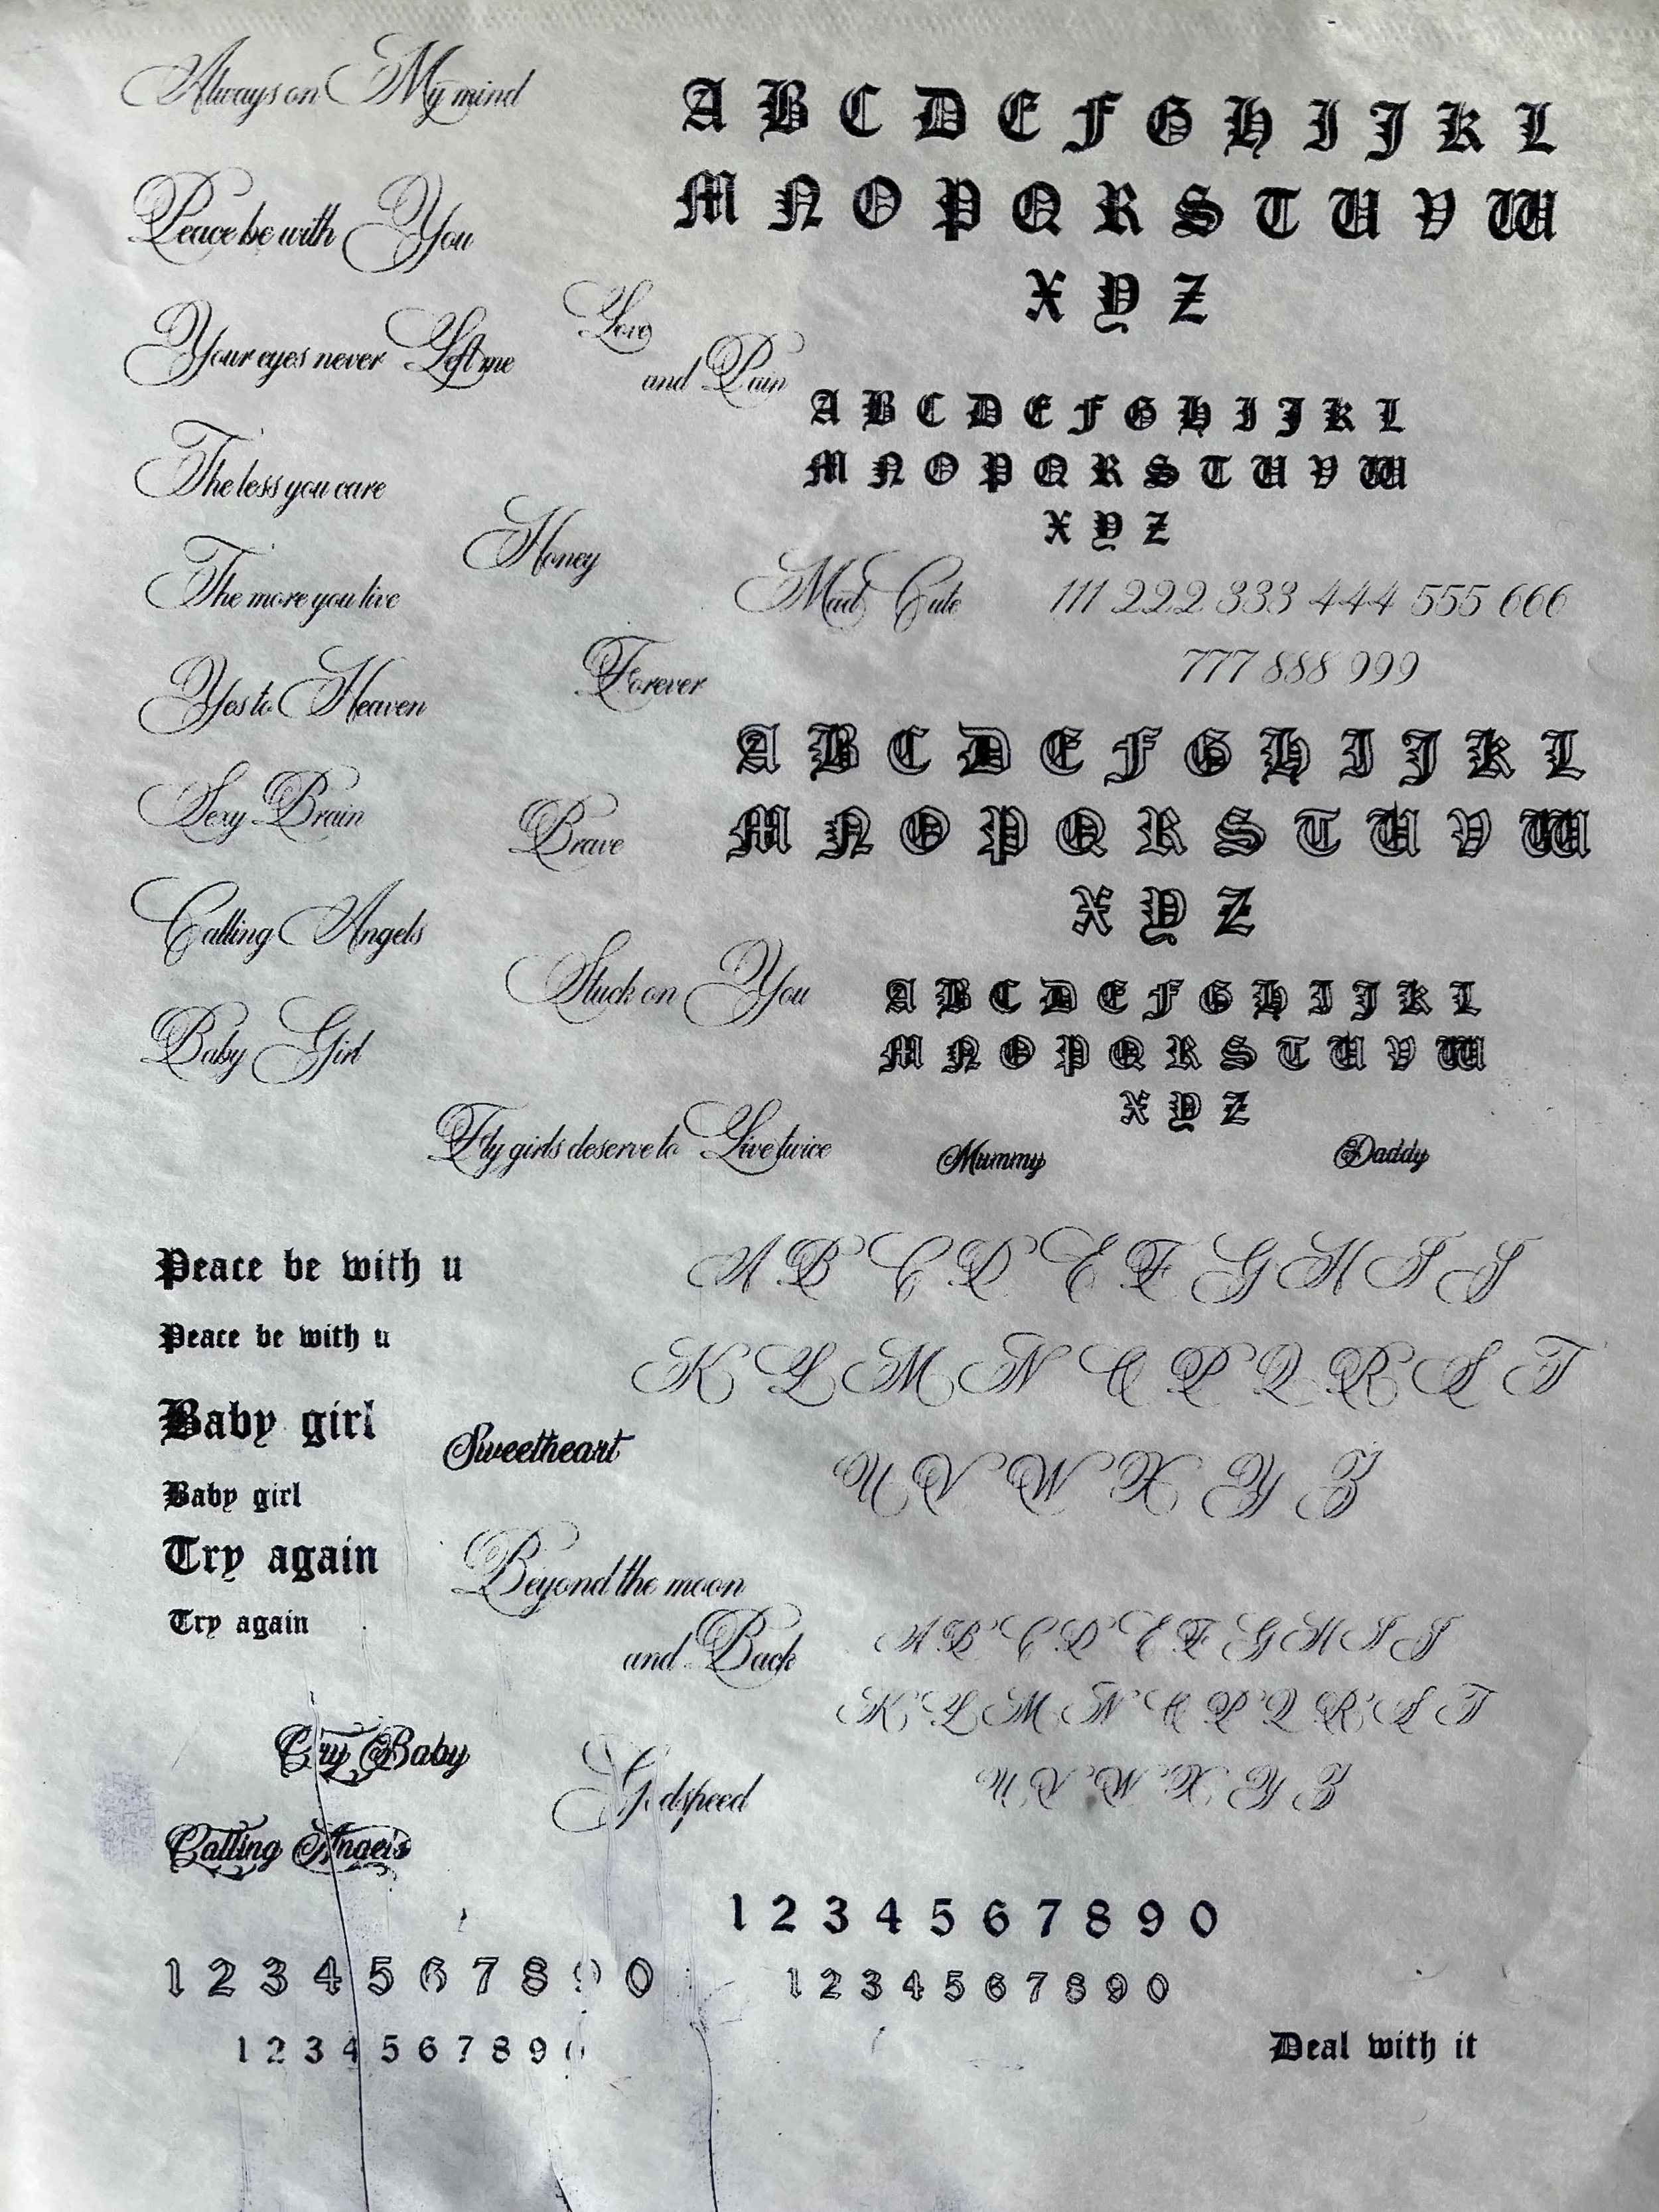 Always on My mind
Peace be with You
Your eyes never Left me
Love
and Pain
The less you care
Honey
The more you live
Forever
Yes to Heaven
Sexy Brain
Brave
Calling Angels
Stuck on You
Baby Girl
Fly girls deserve to Live twice
A B C D E F G H I J K L
M N O P Q R S T U V W
X Y Z
A B C D E F G H I J K L
M N O P Q R S T U V W
X Y Z
Mad Cute
111 222 333 444 555 666
777 888 999
A B C D E F G H I J K L
M N O P Q R S T U V W
X Y Z
A B C D E F G H I J K L
M N O P Q R S T U V W
X Y Z
Mummy
Daddy
Peace be with u
Peace be with u
Baby girl
Sweetheart
Baby girl
Try again
Try again
Beyond the moon
and Back
Cry Baby
Godspeed
Calling Angels
A B C D E F G H I J
K L M N O P Q R S T
U V W X Y Z
A B C D E F G H I J
K L M N O P Q R S T
U V W X Y Z
1 2 3 4 5 6 7 8 9 0
1 2 3 4 5 6 7 8 9 0
1 2 3 4 5 6 7 8 9 0
1 2 3 4 5 6 7 8 9 0
Deal with it